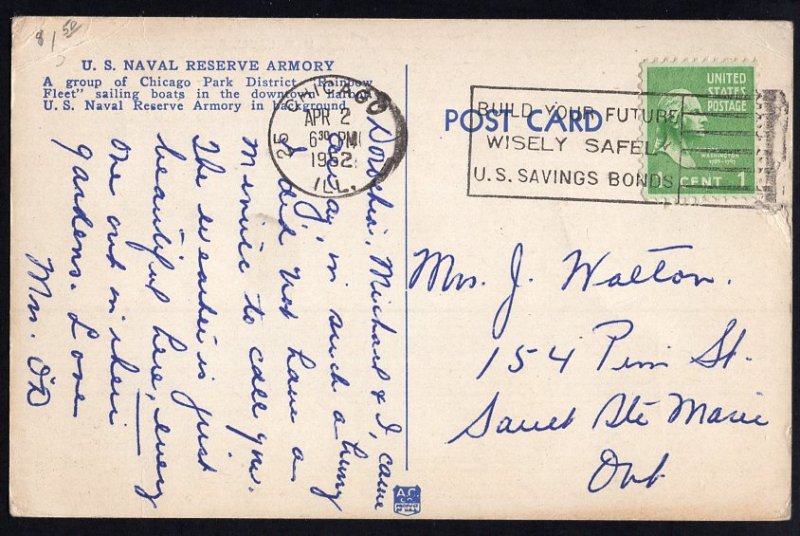 8/50
U. S. NAVAL RESERVE ARMORY
A group of Chicago Park District "Rainbow
Fleet" sailing boats in the downtown harbor.
U. S. Naval Reserve Armory in background.
POST CARD
CHICAGO
APR 2
6 30 PM
1952
ILL.
25
BUILD YOUR FUTURE
WISELY SAFELY
U.S. SAVINGS BONDS
UNITED
STATES
POSTAGE
WASHINGTON
CENT 1
Dorothie, Michael & I, came
away, in such a hurry
I did not have a
minute to call you.
The weather is just
beautiful here, every
one out in their
gardens. Love
Mrs.
Mrs. J. Walton.
154 Pim St.
Sault Ste Marie
Ont
A.C.
CO.